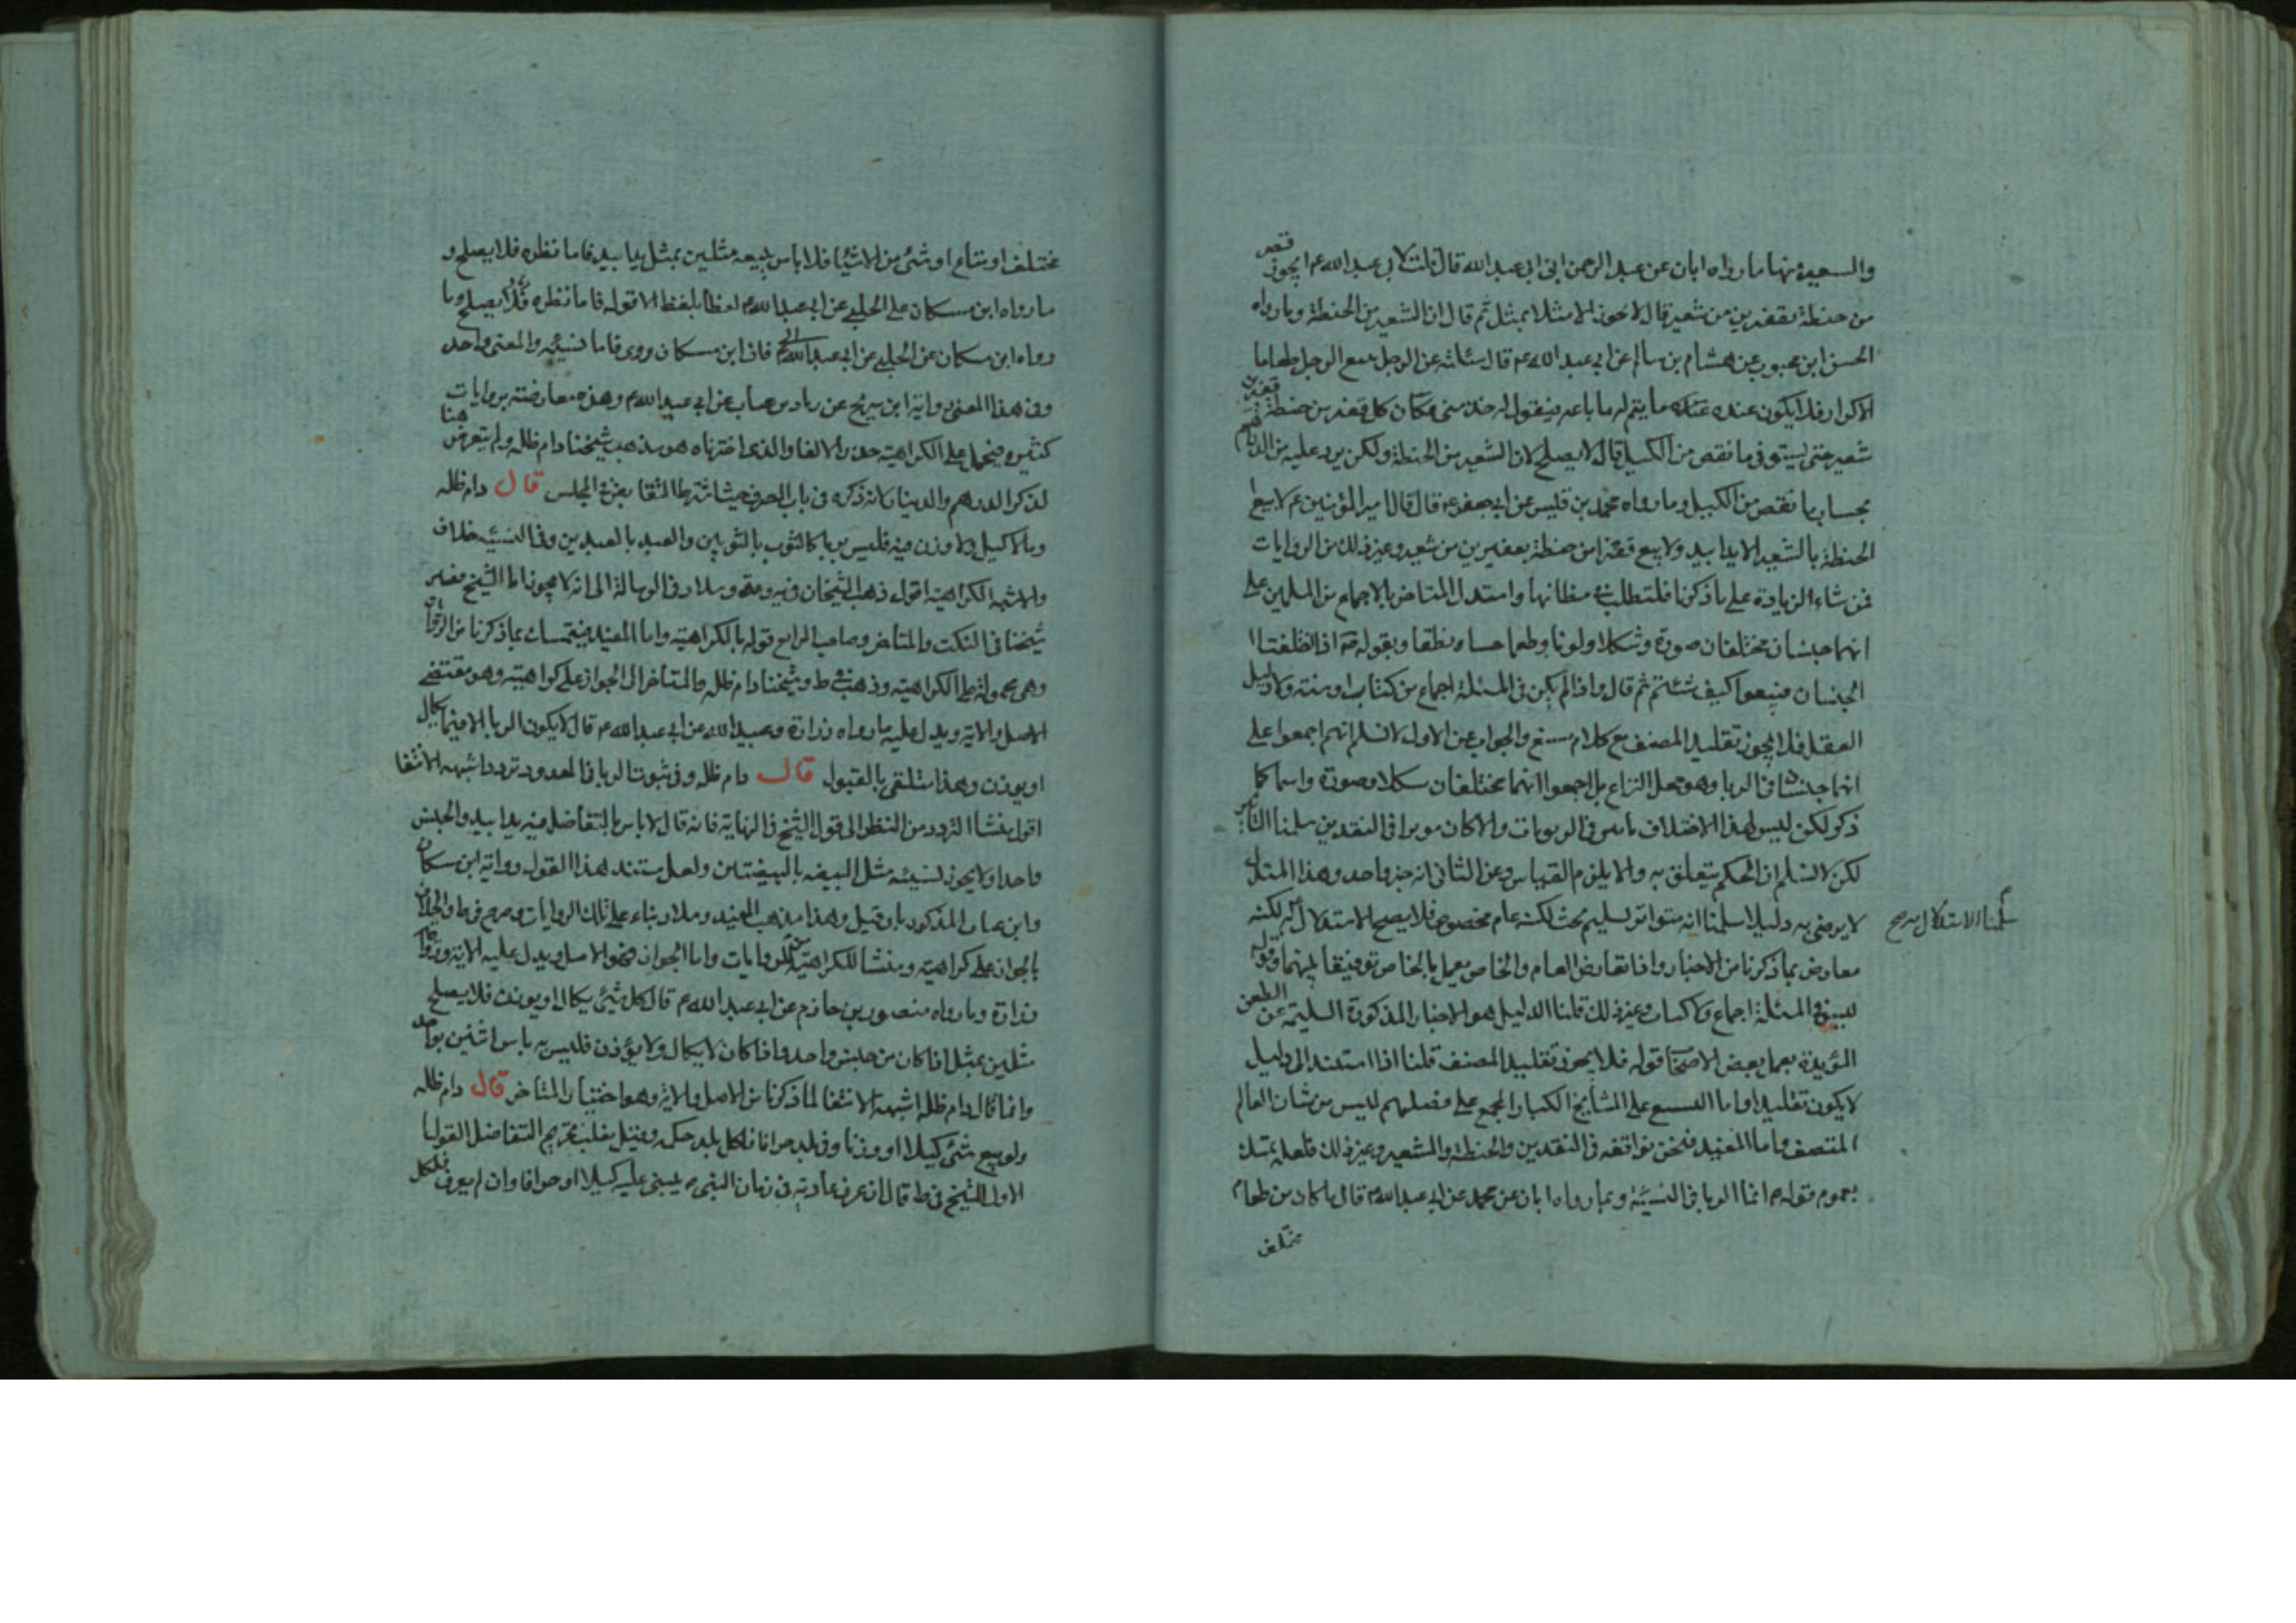 والسعيرة منها ما رواه ابان عن عبد الرحمن ابن ابي عبد الله قال قلت لابي عبد الله ع ايجوز قفيز
من حنطة بقفيزين من شعير قال لا يجوز الا مثلا بمثل ثم قال ان الشعير من الحنطة وما رواه
الحسن ابن محبوب عن هشام بن سالم عن ابي عبد الله ع قال سئلته عن الرجل يبيع الرجل طعاما
الاكرار فلا يكون عنده ما يتم له ما باعه فيقول له خذ مني مكان كل قفيز من حنطة قفيزين
شعير حتى يستوفي ما نقص من الكيل قال لا يصلح لان الشعير من الحنطة ولكن يرد عليه من الدراهم
بحساب ما نقص من الكيل وما رواه محمد بن قيس عن ابي جعفر ع قال قال امير المؤمنين ع لا يبع
الحنطة بالشعير الا يدا بيد ولا يبع قفيزا من حنطة بقفيزين من شعير وغير ذلك من الروايات
فمن شاء الزيادة على ما ذكرنا فلتطلب مظانها واستدل المتاخر بالاجماع من المسلمين على
انهما جنسان مختلفان صورة وشكلا ولونا وطعما حسا ونطقا وبقوله اذا اختلفت
الجنسان فبيعوا كيف شئتم ثم قال واذا لم يكن في المسئلة اجماع من كتاب او سنة ولا دليل
العقل فلا يجوز تقليد المصنف مع كلام والجواب عن الاول لا نسلم انهم اجمعوا على
انهما جنسان في الربا وهو محل النزاع بل اجمعوا انهما مختلفان شكلا وصورة واسما كما
ذكر لكن ليس لهذا الاختلاف تاثير في الربويات والا كان موثرا في النقدين سلمنا التاثير
لكن لا نسلم ان الحكم يتعلق به والا يلزم القياس وعن الثاني انه خبر واحد وهذا المستدل
لا يرضى به دليلا سلمنا انه متواتر لكنه عام مخصوص فلا يصح الاستدلال به لكنه
سلمنا الاستدلال به صح
معارض بما ذكرنا من الاخبار واذا تعارض العام والخاص يعمل بالخاص توفيقا بينهما وقوله
ليس في المسئلة اجماع ولا كتاب وغير ذلك قلنا الدليل هو الاخبار المذكورة السليمة عن الطعن
المؤيدة بعمل بعض الاصحاب قوله فلا يجوز تقليد المصنف قلنا اذا استند الى دليل
لا يكون تقليدا واما على المشايخ الكبار المجمع على فضلهم ليس من شان العالم
المتصف واما المفيد فنحن نوافقه في النقدين والحنطة والشعير وغير ذلك فلعله تمسك
بعموم قوله ع انما الربا في النسيئة وبما رواه ابان عن محمد عن ابي عبد الله ع قال ما كان من طعام
مختلف
مختلف او متاع او شئ من الاشيا فلا باس ببيعه مثلين بمثل يدا بيد فاما نظرة فلا يصلح و
ما رواه ابن مسكان عن الحلبي عن ابي عبد الله ع لفظا بلفظ الا قوله فاما نظرة فلا يصلح وما
رواه ابن مسكان عن الحلبي عن ابي عبد الله ع فان ابن مسكان روى فاما نسيئة والمعنى واحد
وفي هذا المعنى رواية ابن عن عن ابي عبد الله ع وهذه معارضة بروايات
كثيرة فيحمل على الكراهية والذي اخترناه هو مذهب شيخنا دام ظله ولم يتعرض هنا
لذكر الدرهم والدينار لانه ذكره في باب الصرف بعرف المجلس قال دام ظله
وما لا كيل ولا وزن فيه فليس بربا كالثوب بالثوبين والعبد بالعبدين وفي النسيئة خلاف
والاشبه الكراهية اقول ذهب الشيخان في وسلار في الرسالة الى انه لا يجوز اما الشيخ
شيخنا في النكت والمتاخر وصاحب قوله بالكراهية واما المفيد فيتمسك بما ذكرنا من الروايات
وهي محمولة على الكراهية وذهب في ط وشيخنا دام ظله والمتاخر الى الجواز على كراهية وهو مقتضى
الاصل والاية ويدل عليه ما رواه زرارة وعبيد الله عن ابي عبد الله ع قال لا يكون الربا الا فيما يكال
او يوزن وهذا متلقى بالقبول قال دام ظله وفي ثبوت الربا في المعدود تردد اشبهه الانتفا
اقول منشا التردد من النظر الى قول الشيخ في النهاية فانه قال لا باس بالتفاضل فيه يدا بيد والجنس
واحد ولا يجوز نسيئة مثل البيضة بالبيضتين ولعل مستند هذا القول رواية ابن مسكان
وابن المذكورتان وهذا مذهب المفيد وسلار بناء على تلك الروايات وصرح في ط والخلاف
بالجواز على كراهية ومنشا الكراهية الروايات واما الجواز فهو الاصل ويدل عليه الاية ورواية
زرارة وما رواه منصور بن حازم عن ابي عبد الله ع قال كل شئ يكال او يوزن فلا يصلح
مثلين بمثل اذا كان من جنس واحد واذا كان لا يكال ولا يوزن فليس به باس اثنين بواحد
وانما قال دام ظله اشبهه الانتفا لما ذكرنا من الاصل والاية وهو اختيار المتاخر قال دام ظله
ولو بيع شئ كيلا او وزنا وفي بلد جزافا فلكل بلد حكمه وقيل يغلب تحريم التفاضل القول
الاول للشيخ في ط قال ان عرف عادته في زمان النبي ص يبنى عليه كيلا او جزافا وان لم يعرف فلكل